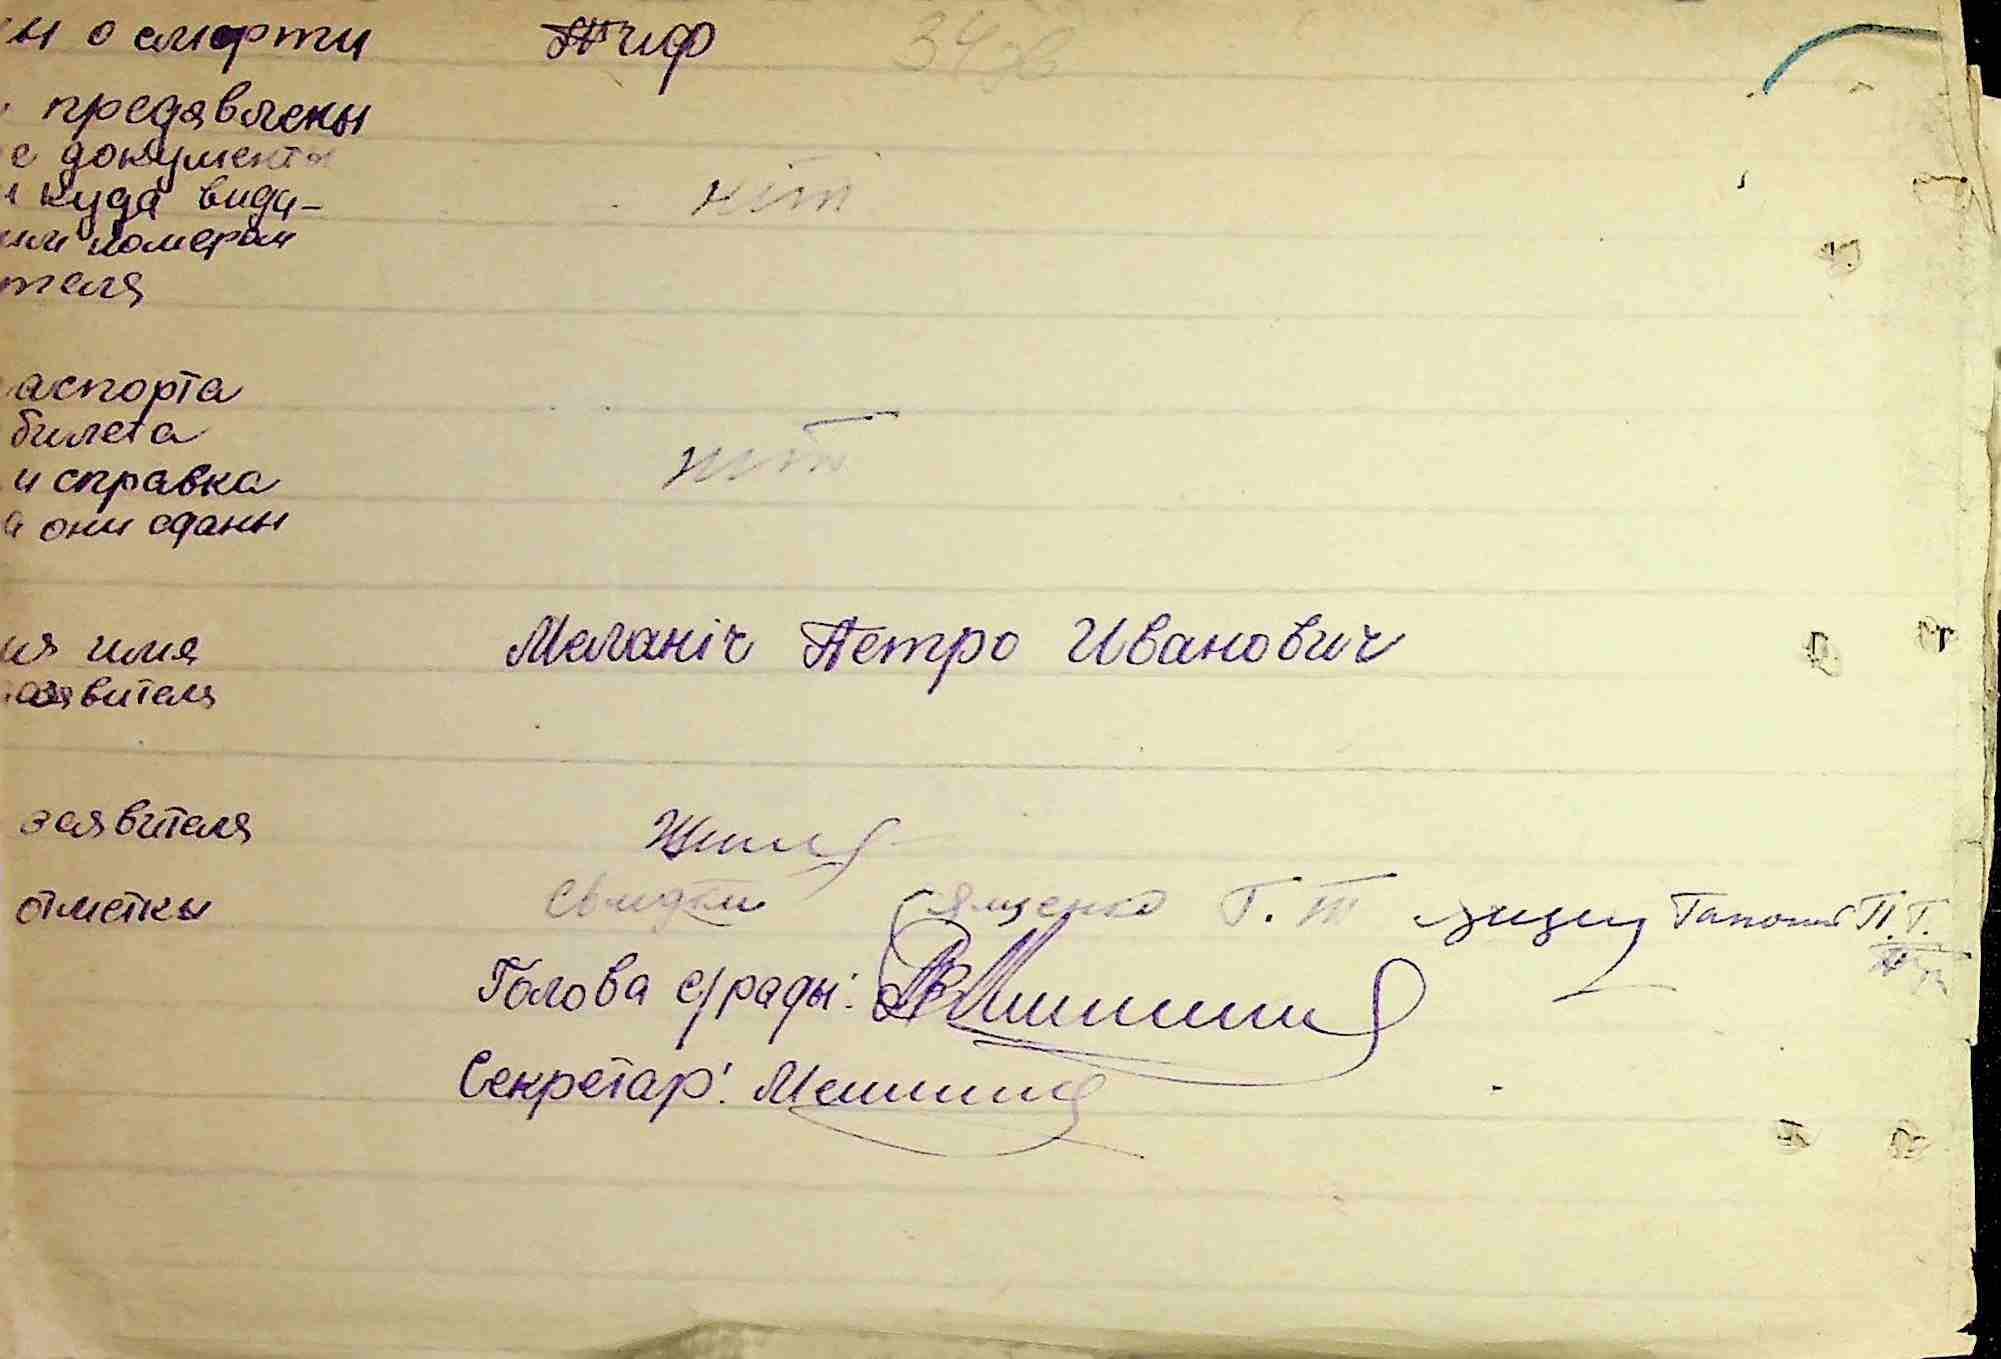 ы о смерти Тиф 34зв
предявлены
е документы
и куда види-
ним номером
теля
ніт
аспорта
билета
и справка
а они сданы
ніт
ия имя Меланіч Петро Иванович
заявителя
заявителя
отметки Свидки Ященко Г. Т Гапоний П. Г.
Голова с/рады:
Секретар: